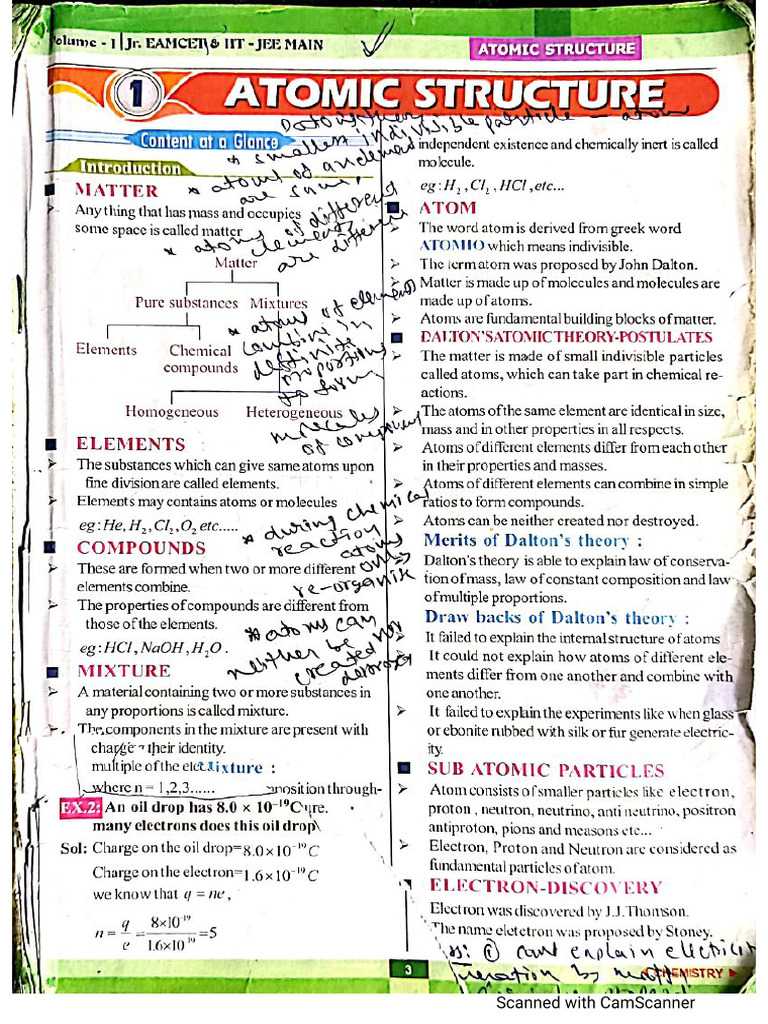 Volume - I Jr. EAMCET & IIT - JEE MAIN
ATOMIC STRUCTURE
1 ATOMIC STRUCTURE
Content at a Glance
Introduction
MATTER
Any thing that has mass and occupies
some space is called matter
Matter
Pure substances Mixtures
Elements Chemical
compounds
Homogeneous Heterogeneous
ELEMENTS
The substances which can give same atoms upon
fine division are called elements.
Elements may contains atoms or molecules
eg: He, H₂, Cl₂, O₂ etc.....
COMPOUNDS
These are formed when two or more different
elements combine.
The properties of compounds are different from
those of the elements.
eg: HCl, NaOH, H₂O.
MIXTURE
A material containing two or more substances in
any proportions is called mixture.
The components in the mixture are present with
their identity.
charge
multiple of the
Mixture :
where n = 1,2,3......
position through-
EX.2: An oil drop has 8.0 × 10⁻¹⁹C
many electrons does this oil drop
Sol: Charge on the oil drop=8.0×10⁻¹⁹ C
Charge on the electron=1.6×10⁻¹⁹ C
we know that q = ne,
n = q/e = 8×10⁻¹⁹/1.6×10⁻¹⁹ = 5
smallest indivisible particle - atom
* atoms of an element
are same,
* atoms of different
elements
are different
* atoms of elements
combine in
definite
proportions
to form
molecules
of compound
* during chemical
reaction
atoms
only
re-organise
* atoms can
neither be
created nor
destroyed
independent existence and chemically inert is called
molecule.
eg: H₂, Cl₂, HCl, etc...
ATOM
The word atom is derived from greek word
ATOMIO which means indivisible.
The term atom was proposed by John Dalton.
Matter is made up of molecules and molecules are
made up of atoms.
Atoms are fundamental building blocks of matter.
DALTON'S ATOMIC THEORY-POSTULATES
The matter is made of small indivisible particles
called atoms, which can take part in chemical re-
actions.
The atoms of the same element are identical in size,
mass and in other properties in all respects.
Atoms of different elements differ from each other
in their properties and masses.
Atoms of different elements can combine in simple
ratios to form compounds.
Atoms can be neither created nor destroyed.
Merits of Dalton's theory :
Dalton's theory is able to explain law of conserva-
tion of mass, law of constant composition and law
of multiple proportions.
Draw backs of Dalton's theory :
It failed to explain the internal structure of atoms
It could not explain how atoms of different ele-
ments differ from one another and combine with
one another.
It failed to explain the experiments like when glass
or ebonite rubbed with silk or fur generate electric-
ity.
SUB ATOMIC PARTICLES
Atom consists of smaller particles like electron,
proton , neutron, neutrino, anti neutrino, positron
antiproton, pions and measons etc...
Electron, Proton and Neutron are considered as
fundamental particles of atom.
ELECTRON-DISCOVERY
Electron was discovered by J.J.Thomson.
The name eletctron was proposed by Stoney.
① cant explain
by
3
CHEMISTRY
Scanned with CamScanner